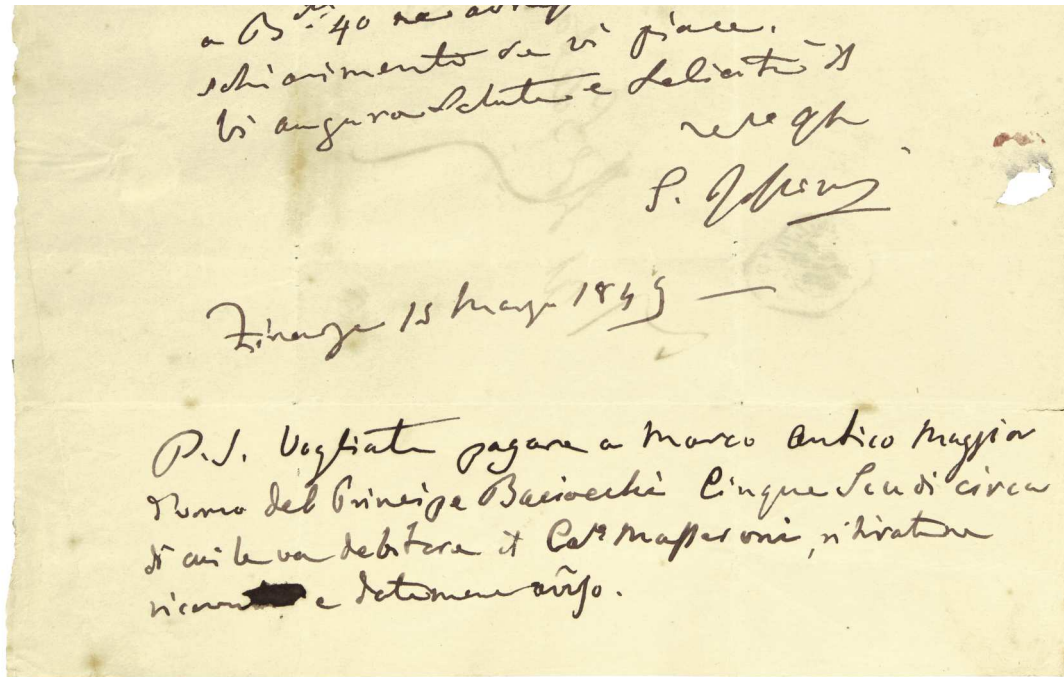 a B.ni 40
schiarimento se vi piace.
Vi auguro Salute e Felicità
S.
Firenze 15 Marzo 1849
P.S. Vogliate pagare a Marco antico Maggior
domo del Principe Baciocchi Cinque Scudi circa
di cui le va debitore il Cav.re Masseroni, ritiratene
e datemene avviso.